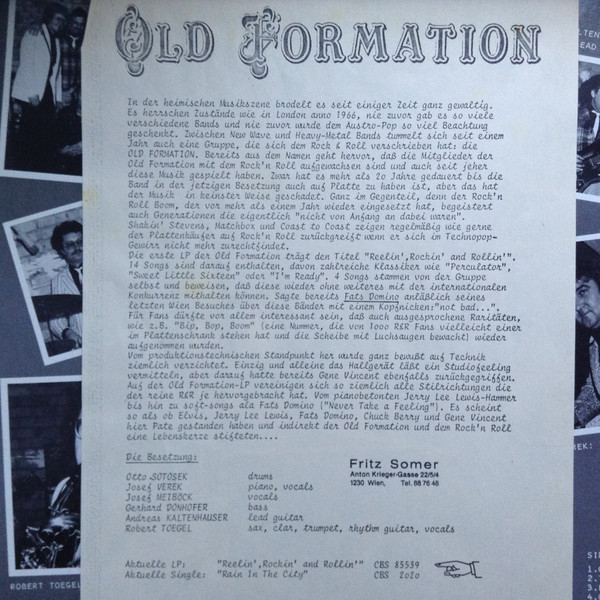 Old Formation
In der heimischen Musikszene brodelt es seit einiger Zeit ganz gewaltig.
Es herrschen Zustände wie in London anno 1966, nie zuvor gab es so viele
verschiedene Bands und nie zuvor wurde dem Austro-Pop so viel Beachtung
geschenkt. Zwischen New Wave und Heavy-Metal Bands tummelt sich seit einem
Jahr auch eine Gruppe, die sich dem Rock & Roll verschrieben hat: die
OLD FORMATION. Bereits aus dem Namen geht hervor, daß die Mitglieder der
Old Formation mit dem Rock'n Roll aufgewachsen sind und auch seit jeher
diese Musik gespielt haben. Zwar hat es mehr als 20 Jahre gedauert bis die
Band in der jetzigen Besetzung auch auf Platte zu haben ist, aber das hat
der Musik in keinster Weise geschadet. Ganz im Gegenteil, denn der Rock'n
Roll Boom, der vor mehr als einem Jahr wieder eingesetzt hat, begeistert
auch Generationen die eigentlich "nicht von Anfang an dabei waren".
Shakin' Stevens, Matchbox und Coast to Coast zeigen regelmäßig wie gerne
der Plattenkäufer auf Rock'n Roll zurückgreift wenn er sich im Technopop-
Gewirr nicht mehr zurechtfindet.
Die erste LP der Old Formation trägt den Titel "Reelin',Rockin' and Rollin'".
14 Songs sind darauf enthalten, davon zahlreiche Klassiker wie "Perculator",
"Sweet Little Sixteen" oder "I'm Ready". 4 Songs stammen von der Gruppe
selbst und beweisen, daß diese wieder ohne weiteres mit der internationalen
Konkurrenz mithalten können. Sagte bereits Fats Domino anläßlich seines
letzten Wien Besuches über diese Bänder mit einem Kopfnicken:"not bad...".
Für Fans dürfte vor allem interessant sein, daß auch ausgesprochene Raritäten,
wie z.B. "Bip, Bop, Boom" (eine Nummer, die von 1000 R&R Fans vielleicht einer
im Plattenschrank stehen hat und die Scheibe mit Luchsaugen bewacht) wieder
aufgenommen wurden.
Vom produktionstechnischen Standpunkt her wurde ganz bewußt auf Technik
ziemlich verzichtet. Einzig und alleine das Hallgerät läßt ein Studiofeeling
vermitteln, aber darauf hatte bereits Gene Vincent ebenfalls zurückgegriffen.
Auf der Old Formation-LP vereinigen sich so ziemlich alle Stilrichtungen die
der reine R&R je hervorgebracht hat. Vom pianobetonten Jerry Lee Lewis-Hammer
bis hin zu soft-songs ala Fats Domino ("Never Take a Feeling"). Es scheint
so als ob Elvis, Jerry Lee Lewis, Fats Domino, Chuck Berry und Gene Vincent
hier Pate gestanden haben und indirekt der Old Formation und dem Rock'n Roll
eine Lebenskerze stifteten....
Die Besetzung:
Otto SOTOSEK drums
Josef VEREK piano, vocals
Josef MEIBÖCK vocals
Gerhard DONHOFER bass
Andreas KALTENHAUSER lead guitar
Robert TOEGEL sax, clar, trumpet, rhythm guitar, vocals
Fritz Somer
Anton Krieger-Gasse 22/5/4
1230 Wien, Tel. 88 76 48
Aktuelle LP: "Reelin',Rockin' and Rollin'" CBS 85539
Aktuelle Single: "Rain In The City" CBS 2020
ROBERT TOEGEL
LEAD